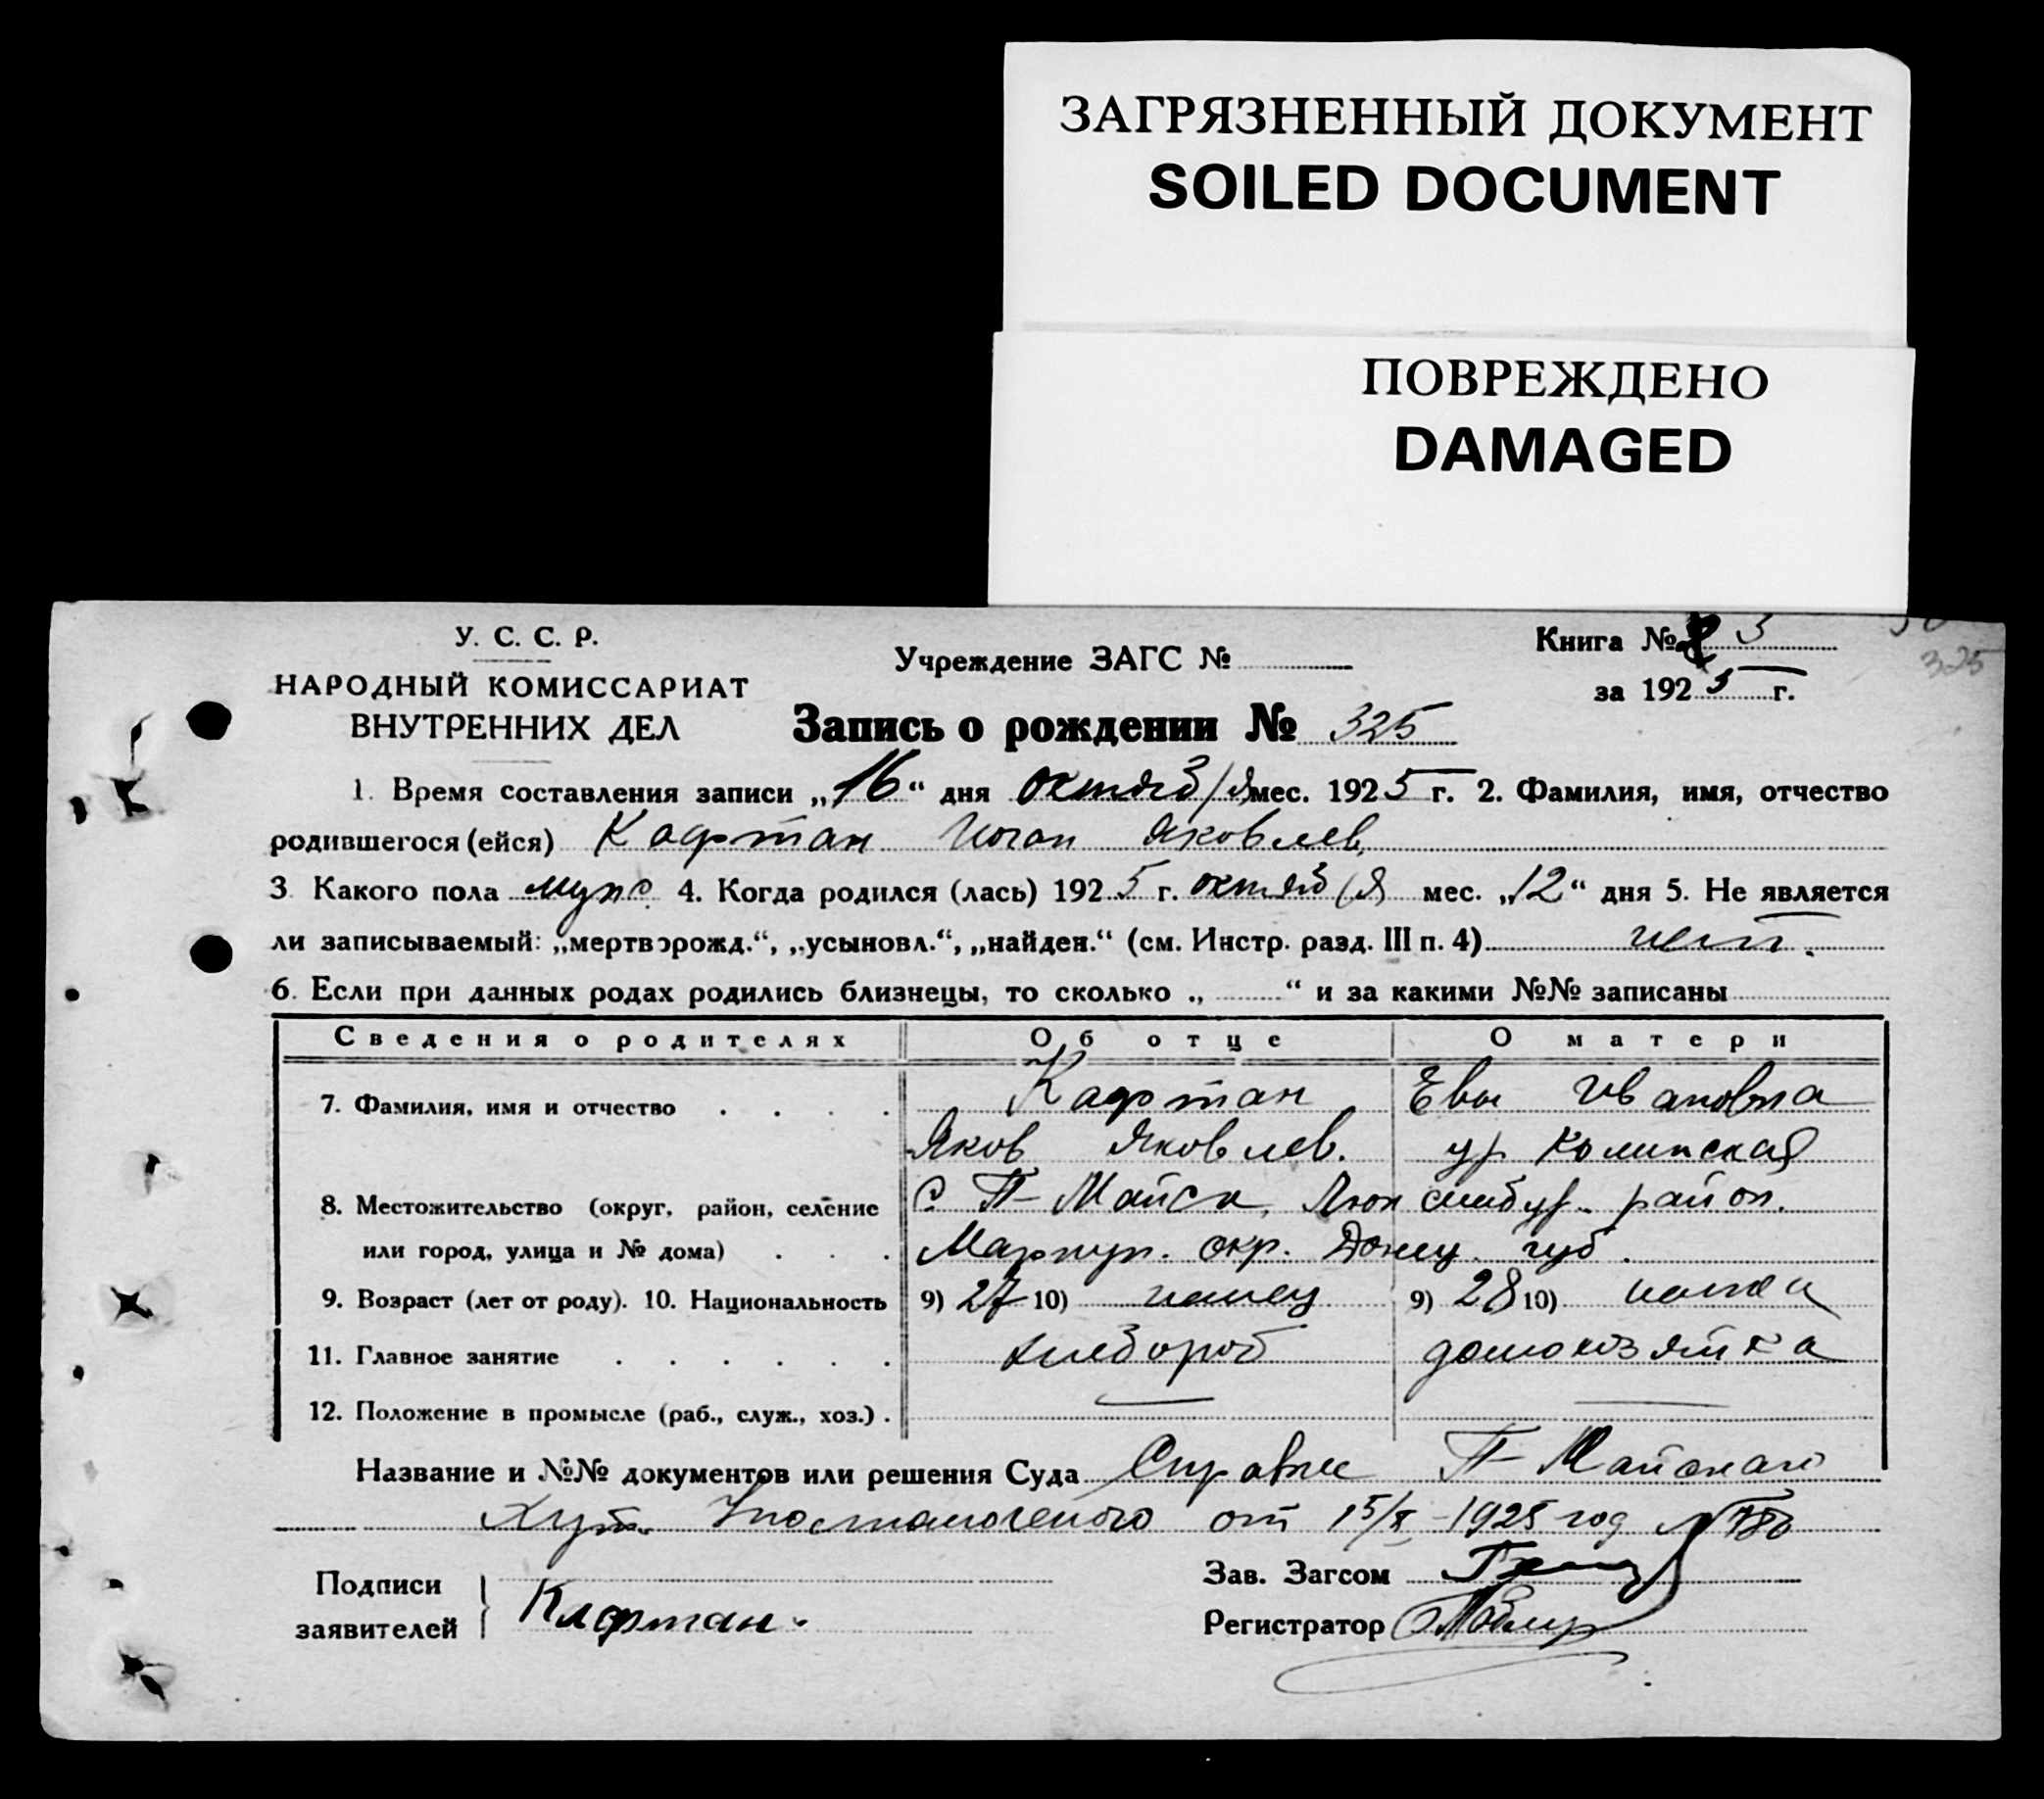 ЗАГРЯЗНЕННЫЙ ДОКУМЕНТ
SOILED DOCUMENT
ПОВРЕЖДЕНО
DAMAGED
У. С. С. Р.
НАРОДНЫЙ КОМИССАРИАТ
ВНУТРЕННИХ ДЕЛ
Учреждение ЗАГС №
Книга № 3
325
за 1925 г.
Запись о рождении № 325
1. Время составления записи „16“ дня октяб/я мес. 1925 г. 2. Фамилия, имя, отчество
родившегося (ейся) Кафтан Иоган Яковлев.
3. Какого пола муж. 4. Когда родился (лась) 1925 г. октяб/я мес. „12“ дня 5. Не является
ли записываемый: „мертворожд.“, „усыновл.“, „найден.“ (см. Инстр. разд. III п. 4) нет.
6. Если при данных родах родились близнецы, то сколько „ “ и за какими №№ записаны
Сведения о родителях Об отце О матери
7. Фамилия, имя и отчество Кафтан Ева Ивановна
Яков Яковлев. ур
8. Местожительство (округ, район, селение С П-Майск, Люксембур. район.
или город, улица и № дома) Мариуп. окр. Донец. губ.
9. Возраст (лет от роду). 10. Национальность 9) 27 10) немец 9) 28 10) немка
11. Главное занятие хлебороб домохозяйка
12. Положение в промысле (раб., служ., хоз.)
Название и №№ документов или решения Суда Справка П-Майского
Хут. от 15/X-1925 год №
Подписи
заявителей Кафтан.
Зав. Загсом
Регистратор